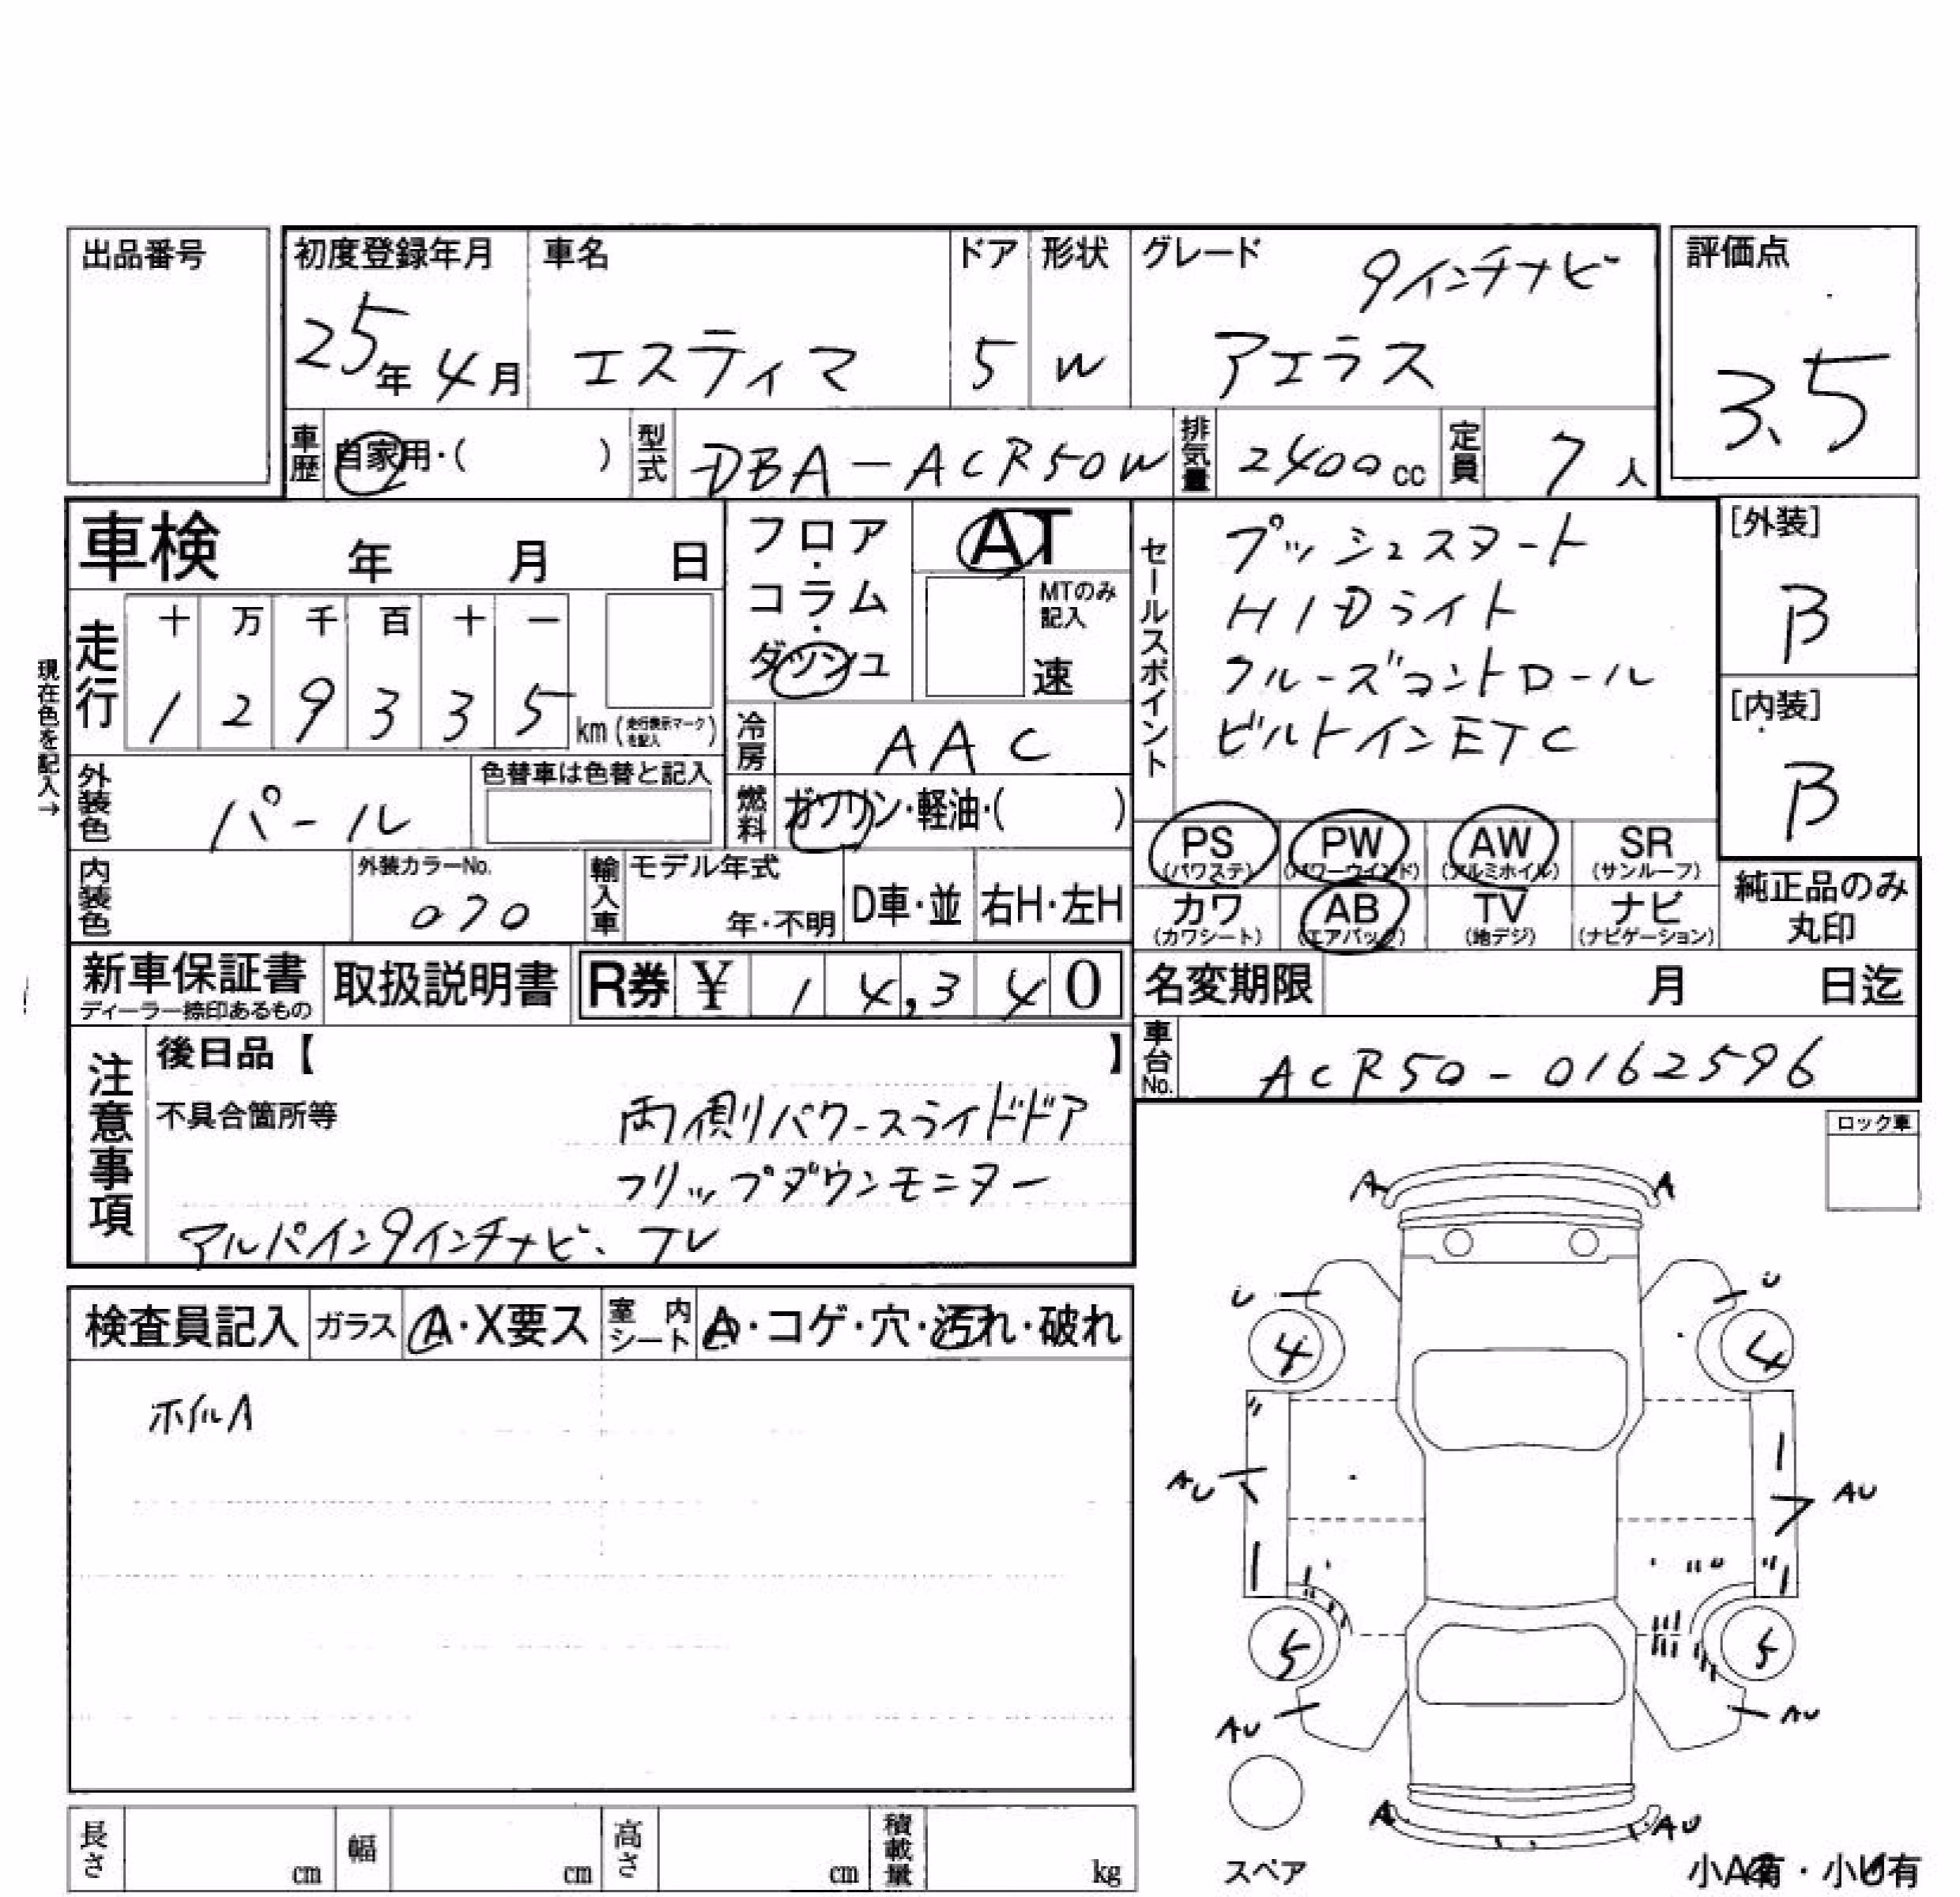 出品番号
初度登録年月 車名 ドア 形状 グレード 9インチナビ 評価点
25年 4月 エスティマ 5 W アエラス 3.5
車歴 自家用・( ) 型式 DBA-ACR50W 排気量 2400cc 定員 7人
車検 年 月 日
フロア・コラム・ダッシュ
AT
MTのみ記入
速
セールスポイント
プッシュスタート
HIDライト
クルーズコントロール
ビルトインETC
[外装]
B
[内装]
B
現在色を記入→
走行 十 万 千 百 十 一
1 2 9 3 3 5 km (走行表示マークを記入)
冷房 AAC
外装色 パール 色替車は色替と記入
燃料 ガソリン・軽油・( )
PS (パワステ) PW (パワーウインド) AW (アルミホイル) SR (サンルーフ)
カワ (カワシート) AB (エアバック) TV (地デジ) ナビ (ナビゲーション)
純正品のみ
丸印
内装色 外装カラーNo. 070 輸入車 モデル年式 年・不明 D車・並 右H・左H
新車保証書 ディーラー捺印あるもの 取扱説明書 R券 ¥ 14,340
名変期限 月 日迄
車台No. ACR50-0162596
注意事項
後日品【 】
不具合箇所等 両側パワースライドドア
フリップダウンモニター
アルパイン9インチナビ、TV
ロック車
検査員記入 ガラス A・X要ス 室内シート A・コゲ・穴・汚れ・破れ
ホイルA
A A
U U
4 4
AU AU
5 5
AU AU
A AU
スペア
小A有・小U有
長さ cm 幅 cm 高さ cm 積載量 kg